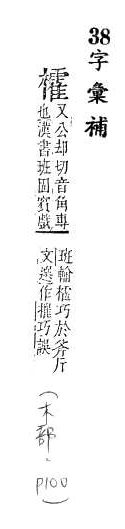 38字彙補
榷
又公却切音角專
也漢書班固賓戲
班輸榷巧於斧斤
文選作搉巧誤
(木部、
p100)